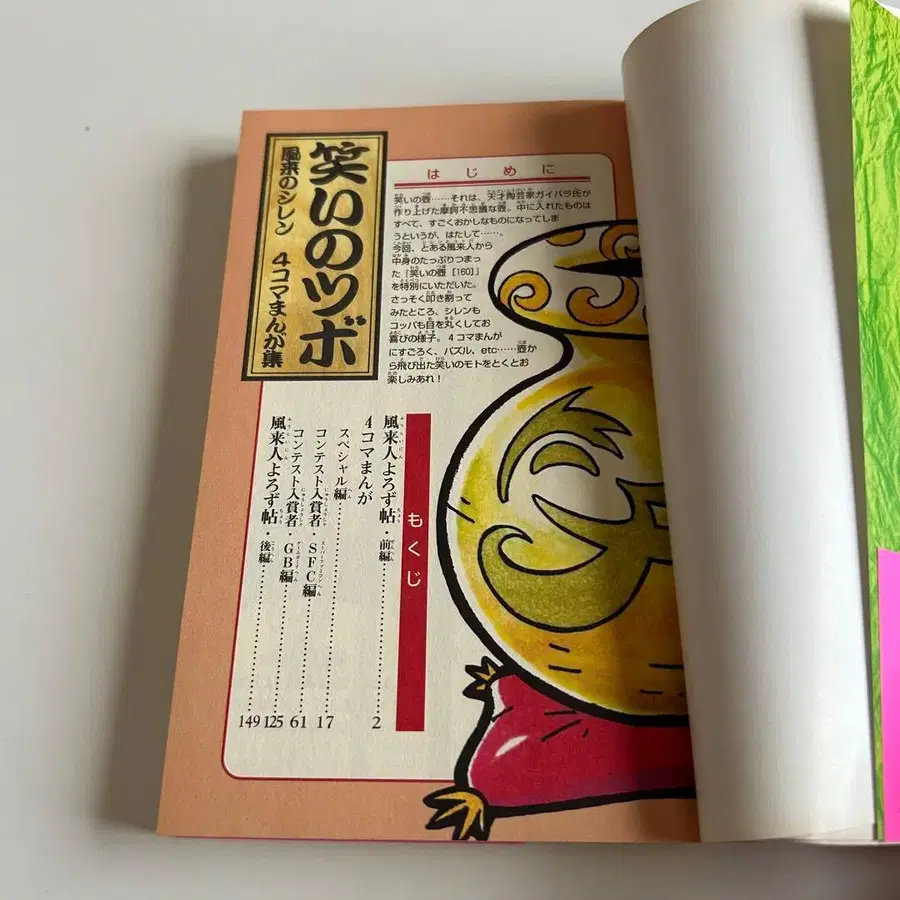 笑いのツボ
風来のシレン 4コマまんが集
はじめに
笑いの壺……それは、天才陶芸家ガイバラ氏が
作り上げた摩訶不思議な壺。中に入れたものは
すべて、すごくおかしなものになってしま
うというが、はたして……。
今回、とある風来人から
中身のたっぷりつまっ
た「笑いの壺［160］」
を特別にいただいた。
さっそく叩き割って
みたところ、シレンも
コッパも目を丸くしてお
喜びの様子。4コマまんが
にすごろく、パズル、etc……壺か
ら飛び出た笑いのモトをとくとお
楽しみあれ！
もくじ
風来人よろず帖・前編……2
4コマまんが
スペシャル編……17
コンテスト入賞者・SFC編……61
コンテスト入賞者・GB編……125
風来人よろず帖・後編……149